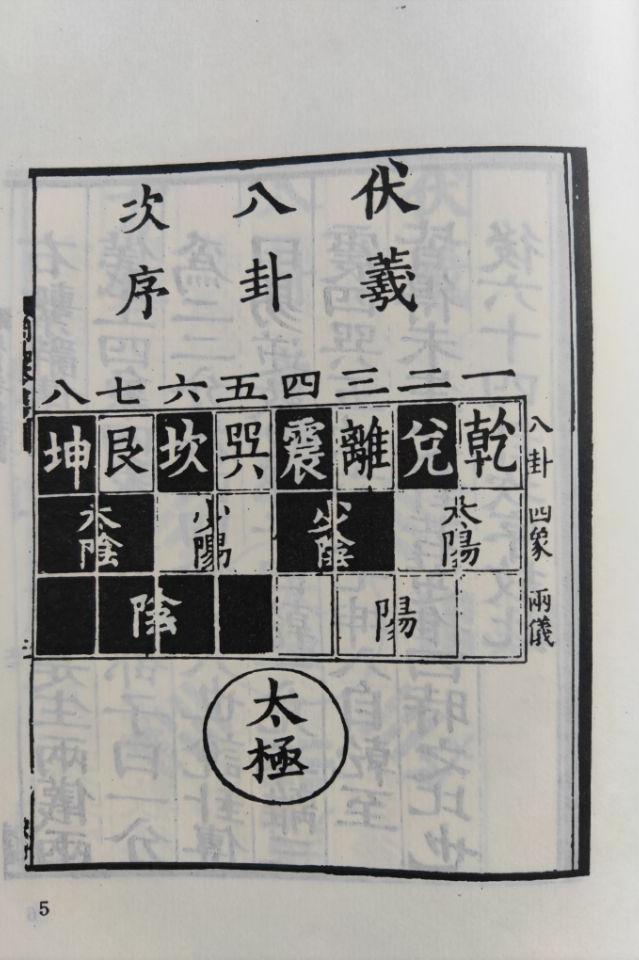 伏羲
八卦
次序
一 二 三 四 五 六 七 八
八卦
乾 兌 離 震 巽 坎 艮 坤
四象
太陽 少陰 少陽 太陰
兩儀
陽 陰
太極
5